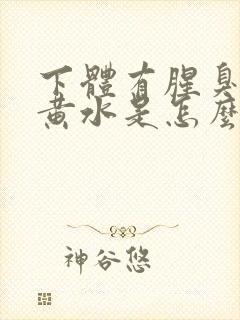 下體有腥臭
黃水是怎麼
神谷悠